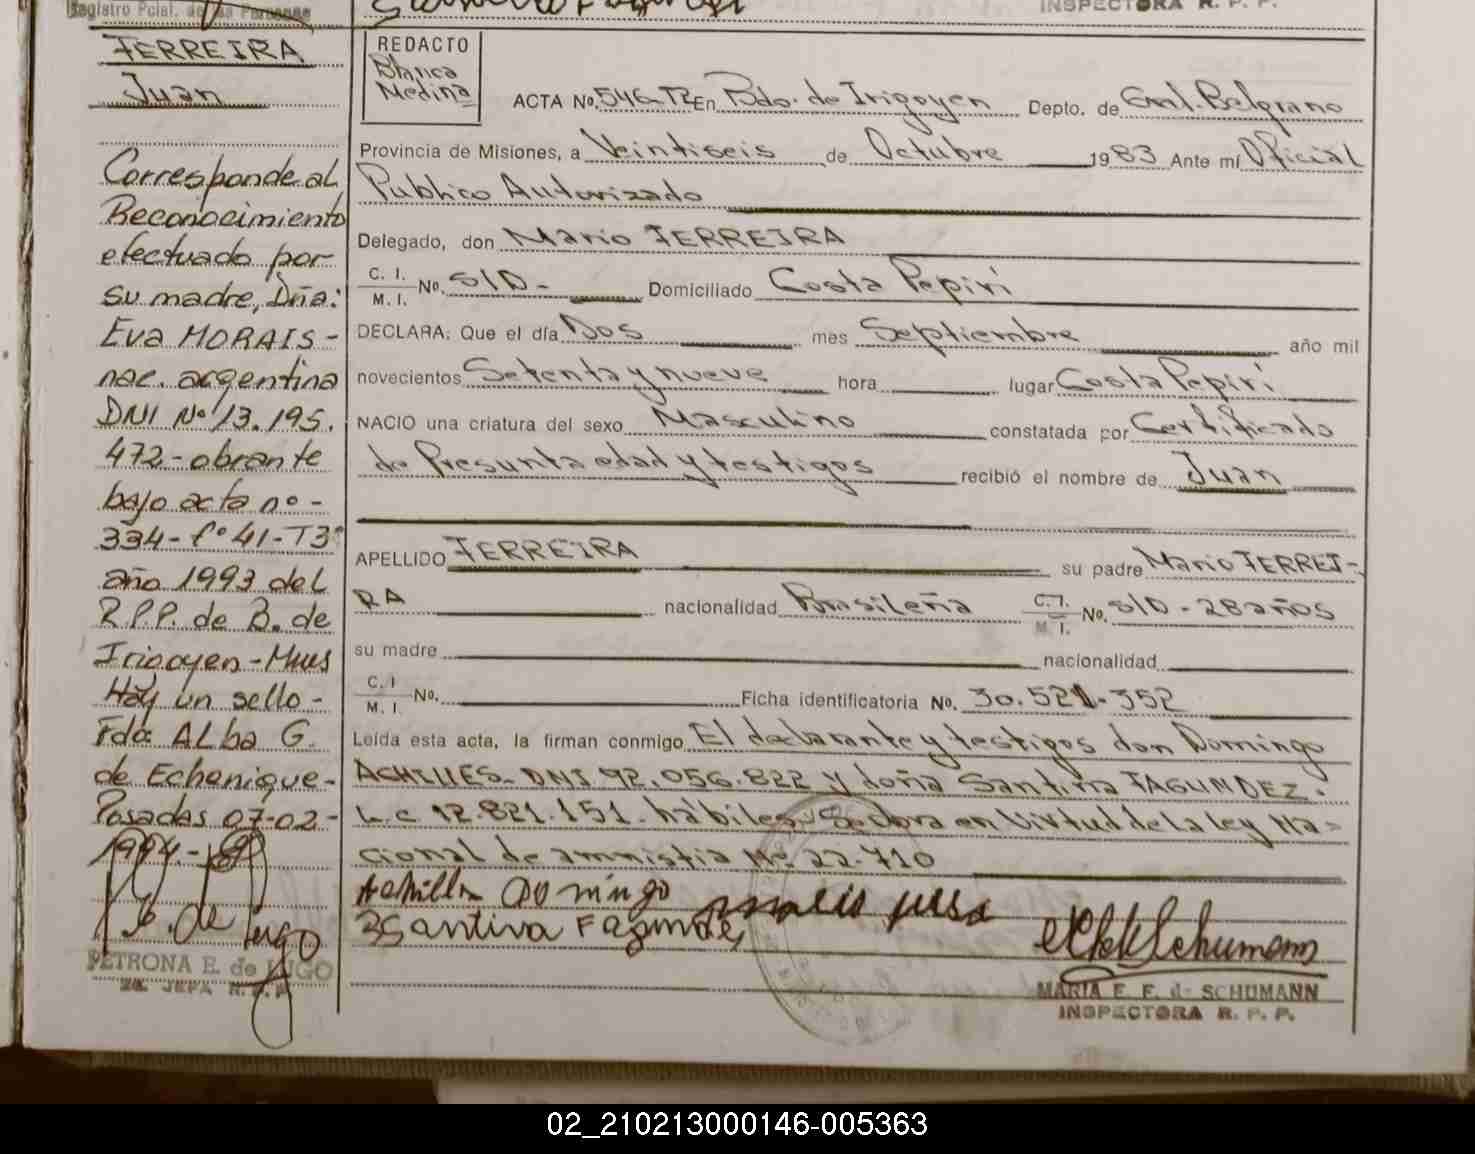 Registro Pcial. de las Personas
INSPECTORA R. P. P.
FERREIRA
Juan
Corresponde al
Reconocimiento
efectuado por
su madre, Dña:
Eva MORAIS -
nac. argentina
DNI Nº 13.195.
472 - obrante
bajo acta nº -
334 - fº 41 - T3º
año 1993 del
R.P.P. de B. de
Irigoyen - Mnes
Hay un sello -
Fdo: ALba G.
de Echenique -
Posadas 07-02-
1994.-
PETRONA E. de LUGO
2a. JEFA R. P. P.
REDACTO
Blanca
Medina
ACTA No. 546-T2 En Bdo. de Irigoyen Depto. de Gral. Belgrano
Provincia de Misiones, a Veintiseis de Octubre 1983 Ante mí Oficial
Publico Autorizado
Delegado, don Mario FERREIRA
C. I.
M. I. No. S/D - Domiciliado Costa Pepirí
DECLARA: Que el día Dos mes Septiembre año mil
novecientos Setenta y nueve hora lugar Costa Pepirí
NACIO una criatura del sexo Masculino constatada por Certificado
de Presunta edad y testigos recibió el nombre de Juan
APELLIDO FERREIRA su padre Mario FERREI-
RA nacionalidad Brasileña C. I. M. I. No. S/D - 28 años
su madre nacionalidad
C. I
M. I. No. Ficha identificatoria No. 30.521-352
Leída esta acta, la firman conmigo El declarante y testigos don Domingo
ACHILLES - DNI 92.056.822 y doña Santina FAGUNDEZ.
L.C 12.821.151. hábiles. Se labra en Virtud de la ley Na-
cional de amnistia Nº 22.710
Achilles Domingo
Santina Fagundez
MARIA E. F. de SCHUMANN
INSPECTORA R. P. P.
02_210213000146-005363